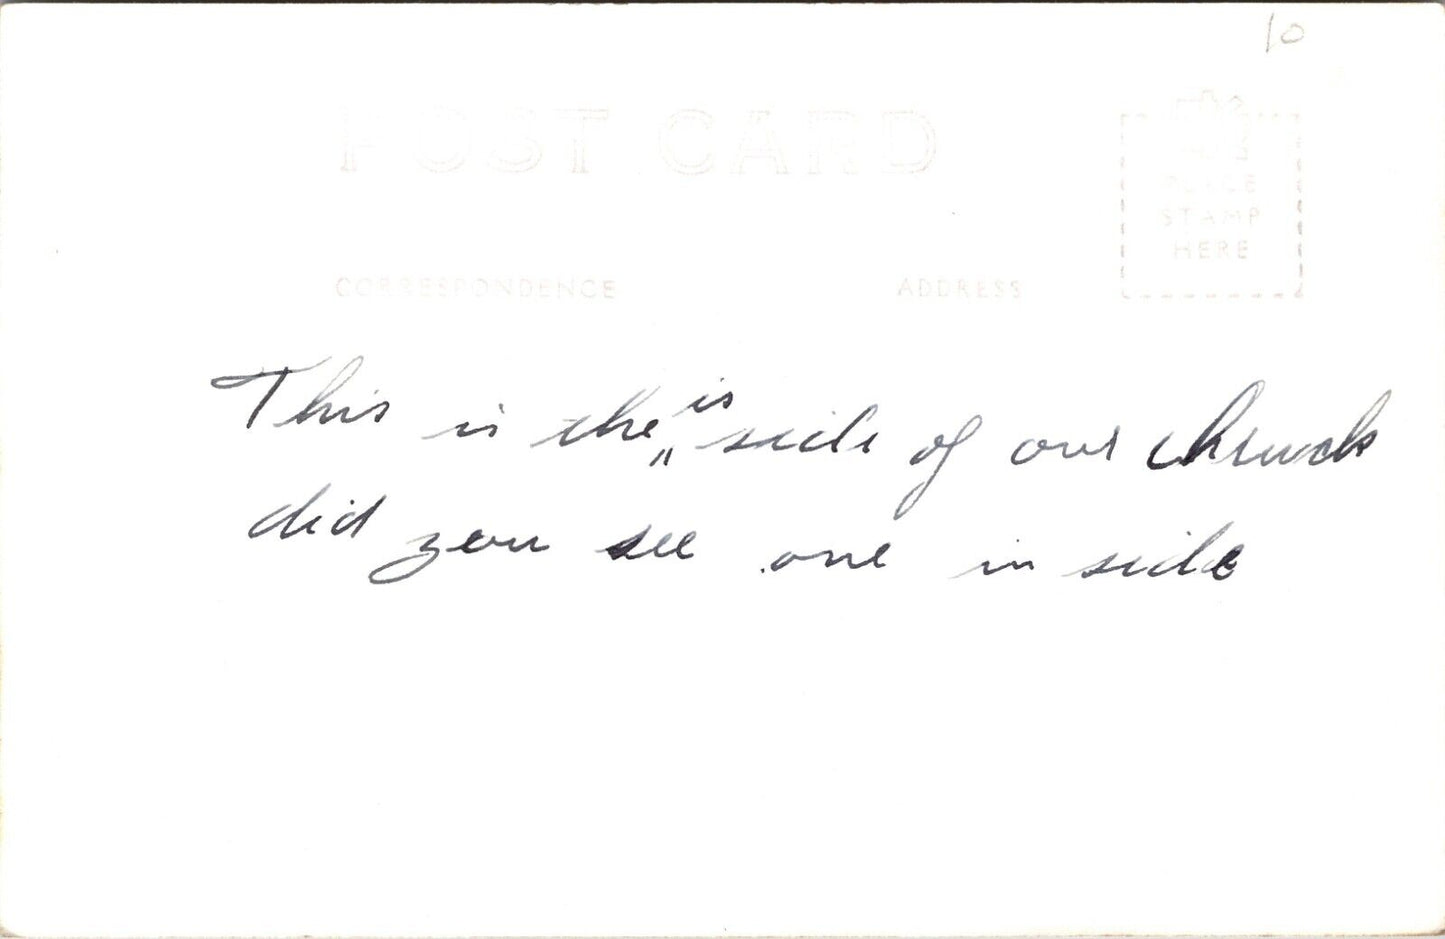 10
POST CARD
PLACE
STAMP
HERE
CORRESPONDENCE
ADDRESS
is
This is the " side of our chruch
did you see one in side